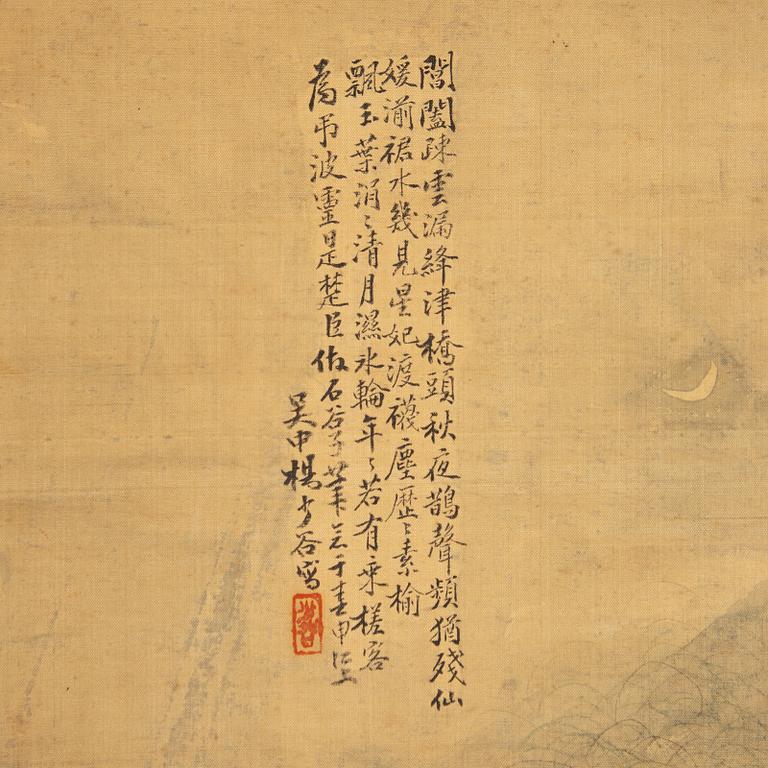 閶闔疎雲漏絳津橋頭秋夜鵲聲頻猶殘仙
媛湔裙水幾見星妃渡襪塵歷〻素榆
飄玉葉涓〻清月濕氷輪年〻若有乗槎客
為弔波靈是楚臣倣石谷子筆於于春申江上
吴中楊少谷寫